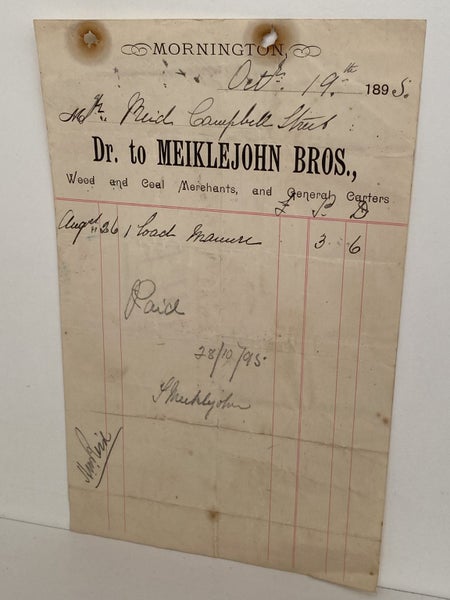 MORNINGTON,
Octr 19th 1895.
Mr. Reid Campbell Street
Dr. to MEIKLEJOHN BROS.,
Wood and Coal Merchants, and General Carters
£ S D
Augst 26 1 load Manure 3 6
Paid
28/10/95
J Meiklejohn
Reid